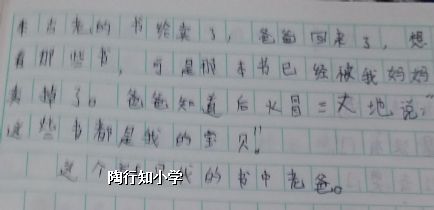 本古老的书给卖了，爸爸回来了，想
看那些书，可是那本书已经被我妈妈
卖掉了。爸爸知道后火冒三丈地说：“
这些书都是我的宝贝！”
这个 我的书中老爸。
陶行知小学